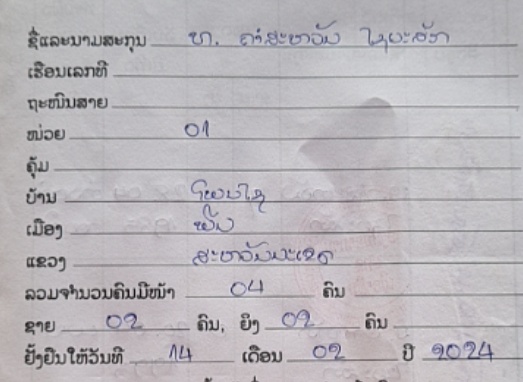 ຊື່ແລະນາມສະກຸນ ທ. ຄຳສະຫວັນ ໄຊຍະສັກ
ເຮືອນເລກທີ
ຖະໜົນສາຍ
ໜ່ວຍ 01
ຄຸ້ມ
ບ້ານ ໂພນໄຊ
ເມືອງ ພີນ
ແຂວງ ສະຫວັນນະເຂດ
ລວມຈຳນວນຄົນມີໜ້າ 04 ຄົນ
ຊາຍ 02 ຄົນ, ຍິງ 02 ຄົນ
ຢັ້ງຢືນໃຫ້ວັນທີ 14 ເດືອນ 02 ປີ 2024